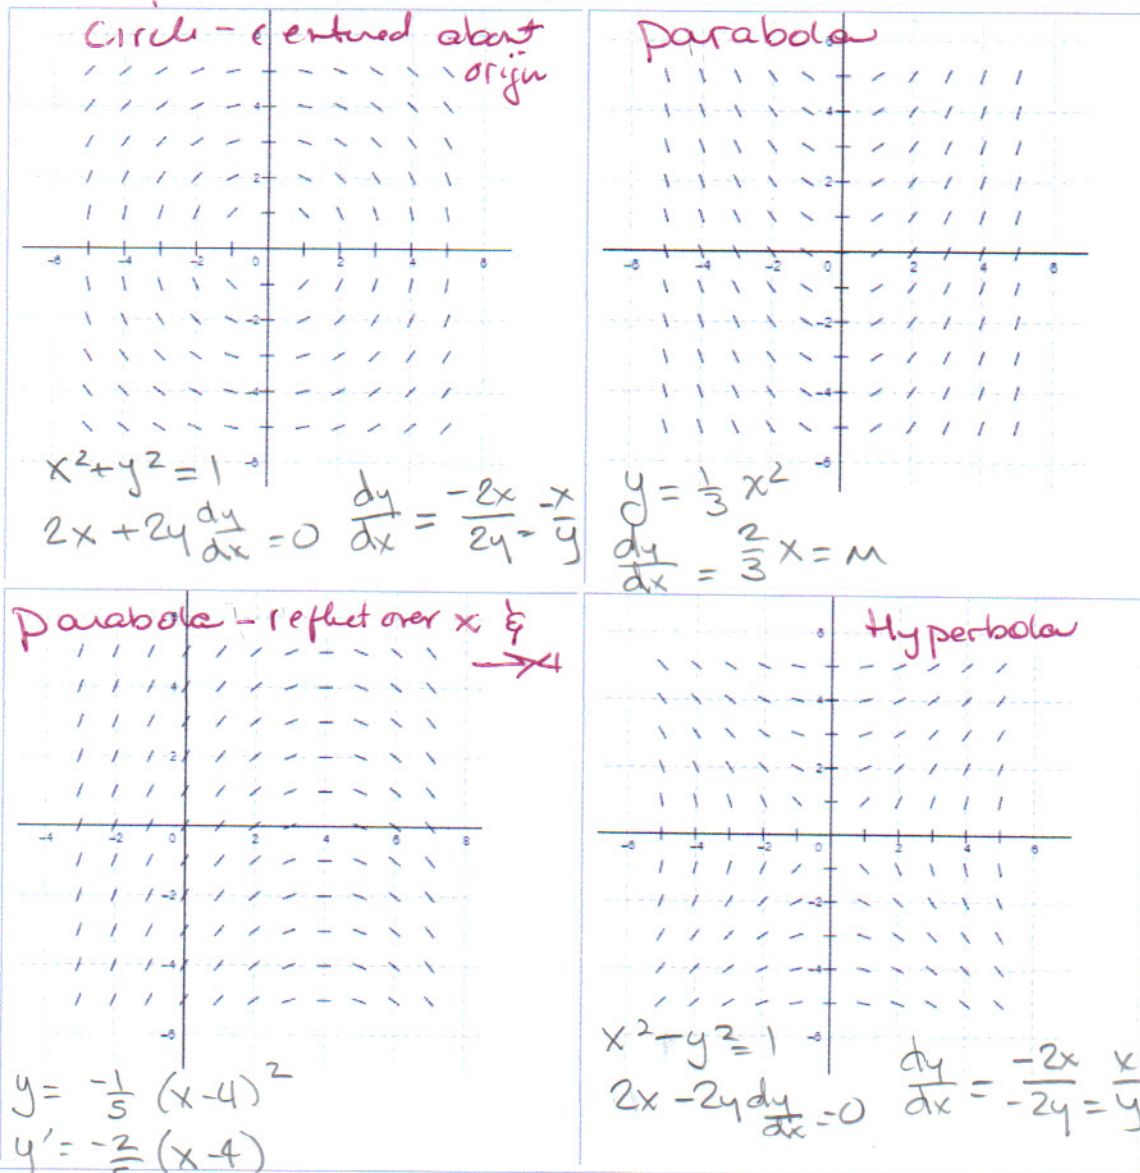 Circle - centered about
origin
6
4
2
-6 -4 -2 0 2 4 6
-2
-4
-6
x² + y² = 1
2x + 2y dy/dx = 0 dy/dx = -2x/2y = -x/y
parabola
6
4
2
-6 -4 -2 0 2 4 6
-2
-4
-6
y = 1/3 x²
dy/dx = 2/3 x = m
parabola - reflect over x &
→ 4
6
4
2
-4 -2 0 2 4 6 8
-2
-4
-6
y = -1/5 (x-4)²
y' = -2/5 (x-4)
Hyperbola
6
4
2
-6 -4 -2 0 2 4 6
-2
-4
-6
x² - y² = 1
2x - 2y dy/dx = 0 dy/dx = -2x/-2y = x/y